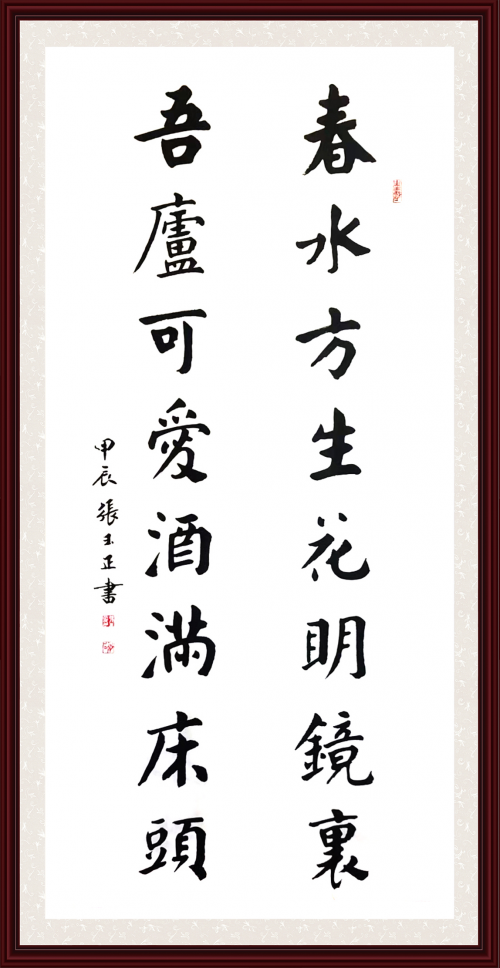 春水方生花明鏡裏
吾廬可愛酒滿床頭
甲辰張玉正書